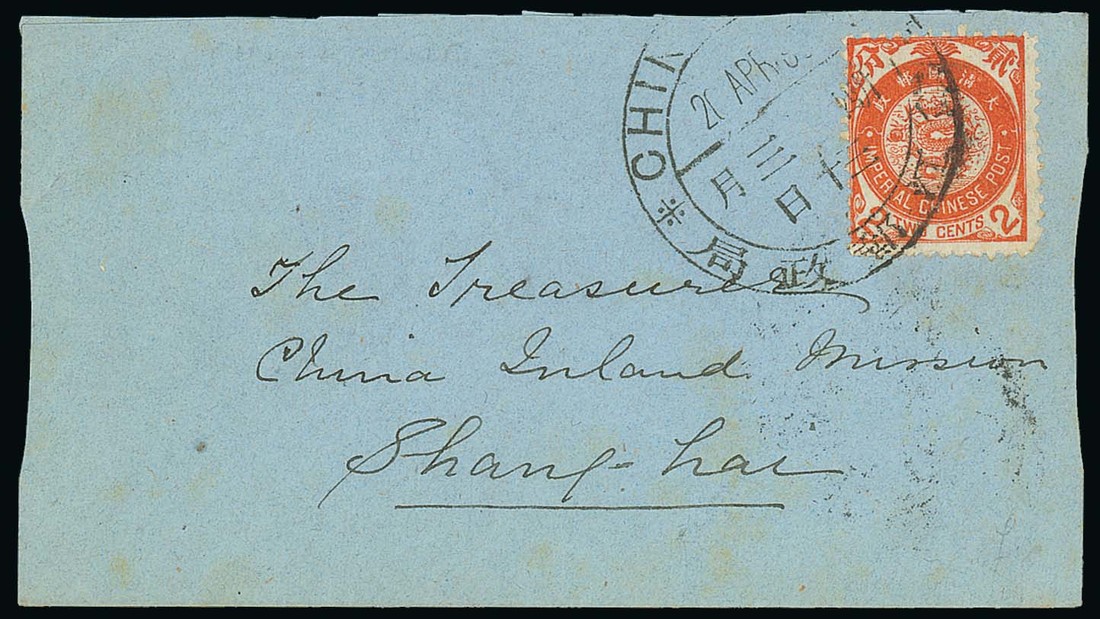 CHIN
APR
三
月 日 十
局 政
分 貳
大清國郵政
IMPERIAL CHINESE POST
2 TWO CENTS 2
The Treasurer
China Inland Mission
Shang-hai